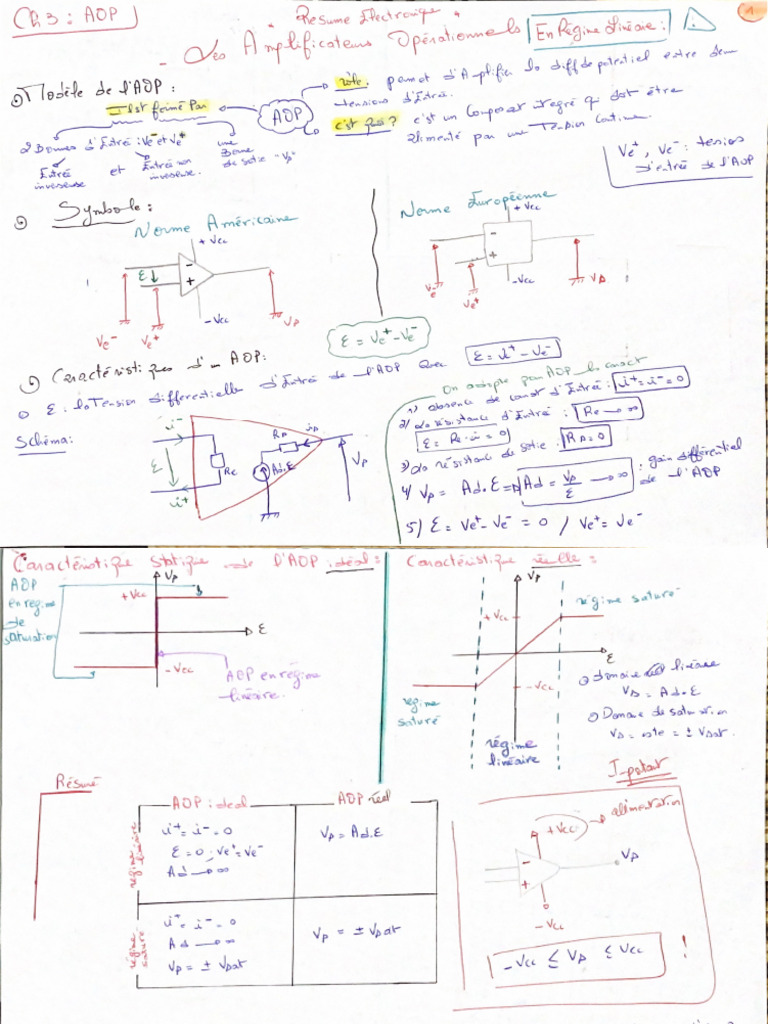 Ch3: AOP
Résumé Electronique
1
- Les Amplificateurs Opérationnels En Régime Linéaire:
Modèle de l'AOP:
Il est formé par
AOP
rôle: permet d'Amplifier la diff de potentiel entre deux
tensions d'Entrée.
c'est quoi? c'est un composant intégré qui doit être
alimenté par une Tension continue.
2 Bornes d'Entrée: Ve- et Ve+
Entrée inverseuse et Entrée non inverseuse.
une Borne de sortie "Vs"
Ve+, Ve-: tensions
d'entrée de l'AOP
Symbole:
Norme Américaine
+Vcc
ε
-
+
-Vcc
Ve-
Ve+
Vs
Norme Européenne
+Vcc
-
+
-Vcc
Ve-
Ve+
Vs
ε = Ve+ - Ve-
Caractéristiques d'un AOP:
ε: la Tension différentielle d'Entrée de l'AOP avec ε = Ve+ - Ve-
Schéma:
i-
ε
i+
Re
Rs
is
Ad.ε
Vs
1) absence de d'Entrée: i+ = i- = 0
2) La résistance d'Entrée: Re → ∞
ε = Re.i = 0
3) La résistance de sortie: Rs = 0
4) Vs = Ad.ε ⇒ Ad = Vs/ε → ∞ : gain différentiel
de l'AOP
5) ε = Ve+ - Ve- = 0 / Ve+ = Ve-
Caractéristique statique de l'AOP idéal:
AOP
en régime
de
saturation
+Vcc
Vs
ε
-Vcc
AOP en régime
linéaire.
Caractéristique réelle:
Vs
régime saturé
+Vcc
ε
-Vcc
régime
saturé
régime
linéaire
domaine linéaire
Vs = Ad.ε
Domaine de saturation
Vs = cste = ± Vsat.
Résumé
AOP: idéal
AOP réel
régime linéaire
i+ = i- = 0
ε = 0; Ve+ = Ve-
Ad → ∞
Vs = Ad.ε
régime saturé
i+ = i- = 0
Ad → ∞
Vs = ± Vsat
Vs = ± Vsat
Important
+Vcc → alimentation
-
+
Vs
-Vcc
-Vcc ≤ Vs ≤ Vcc !